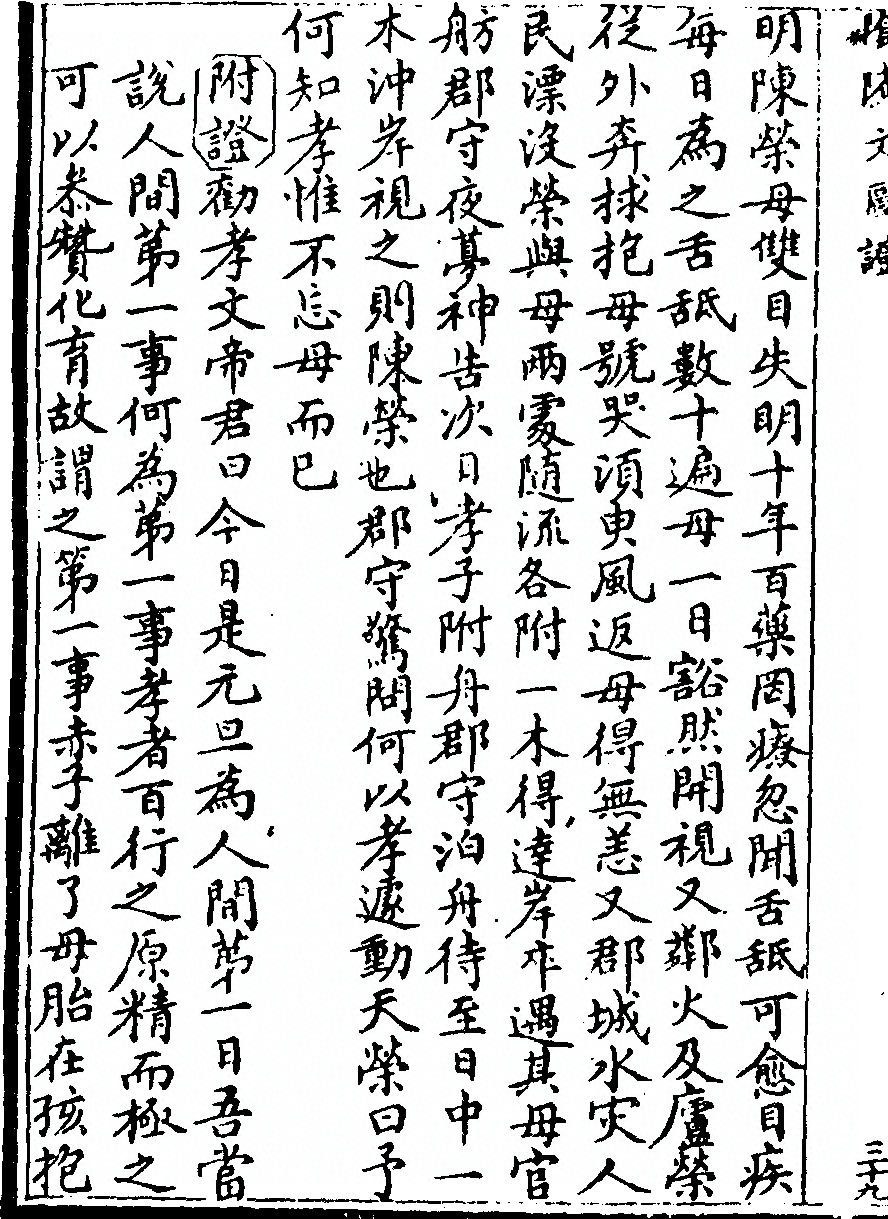 陰隲文廣證
明陳榮母雙目失明十年百藥罔療忽聞舌舐可愈目疾
每日為之舌舐數十遍母一日豁然開視又鄰火及廬榮
從外奔救抱母號哭須臾風返母得無恙又郡城水灾人
民漂没榮與母兩處随流各附一木得達岸亦遇其母官
舫郡守夜夢神告次日孝子附舟郡守泊舟待至日中一
木沖岸視之則陳榮也郡守驚問何以孝遽動天榮曰予
何知孝惟不忘母而已
附證勸孝文帝君曰今日是元旦為人間第一日吾當
說人間第一事何為第一事孝者百行之原精而極之
可以參贊化育故謂之第一事赤子離了母胎在孩抱
三十九